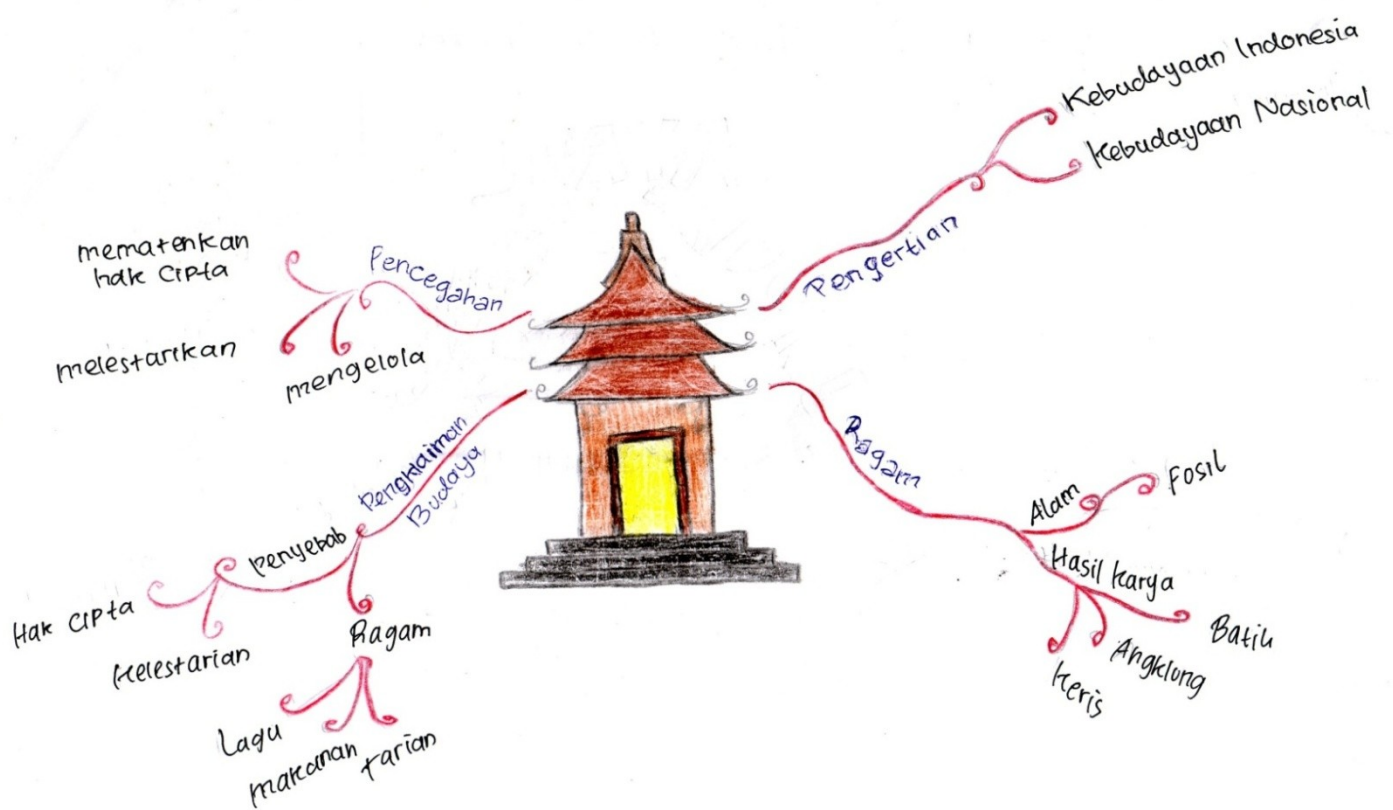 Kebudayaan Indonesia
Kebudayaan Nasional
Pengertian
mematenkan
hak cipta
Pencegahan
melestarikan
mengelola
Pengklaiman
Budaya
Penyebab
Hak cipta
Kelestarian
Ragam
Lagu
makanan
tarian
Ragam
Alam
Fosil
Hasil karya
Batik
Angklung
Keris